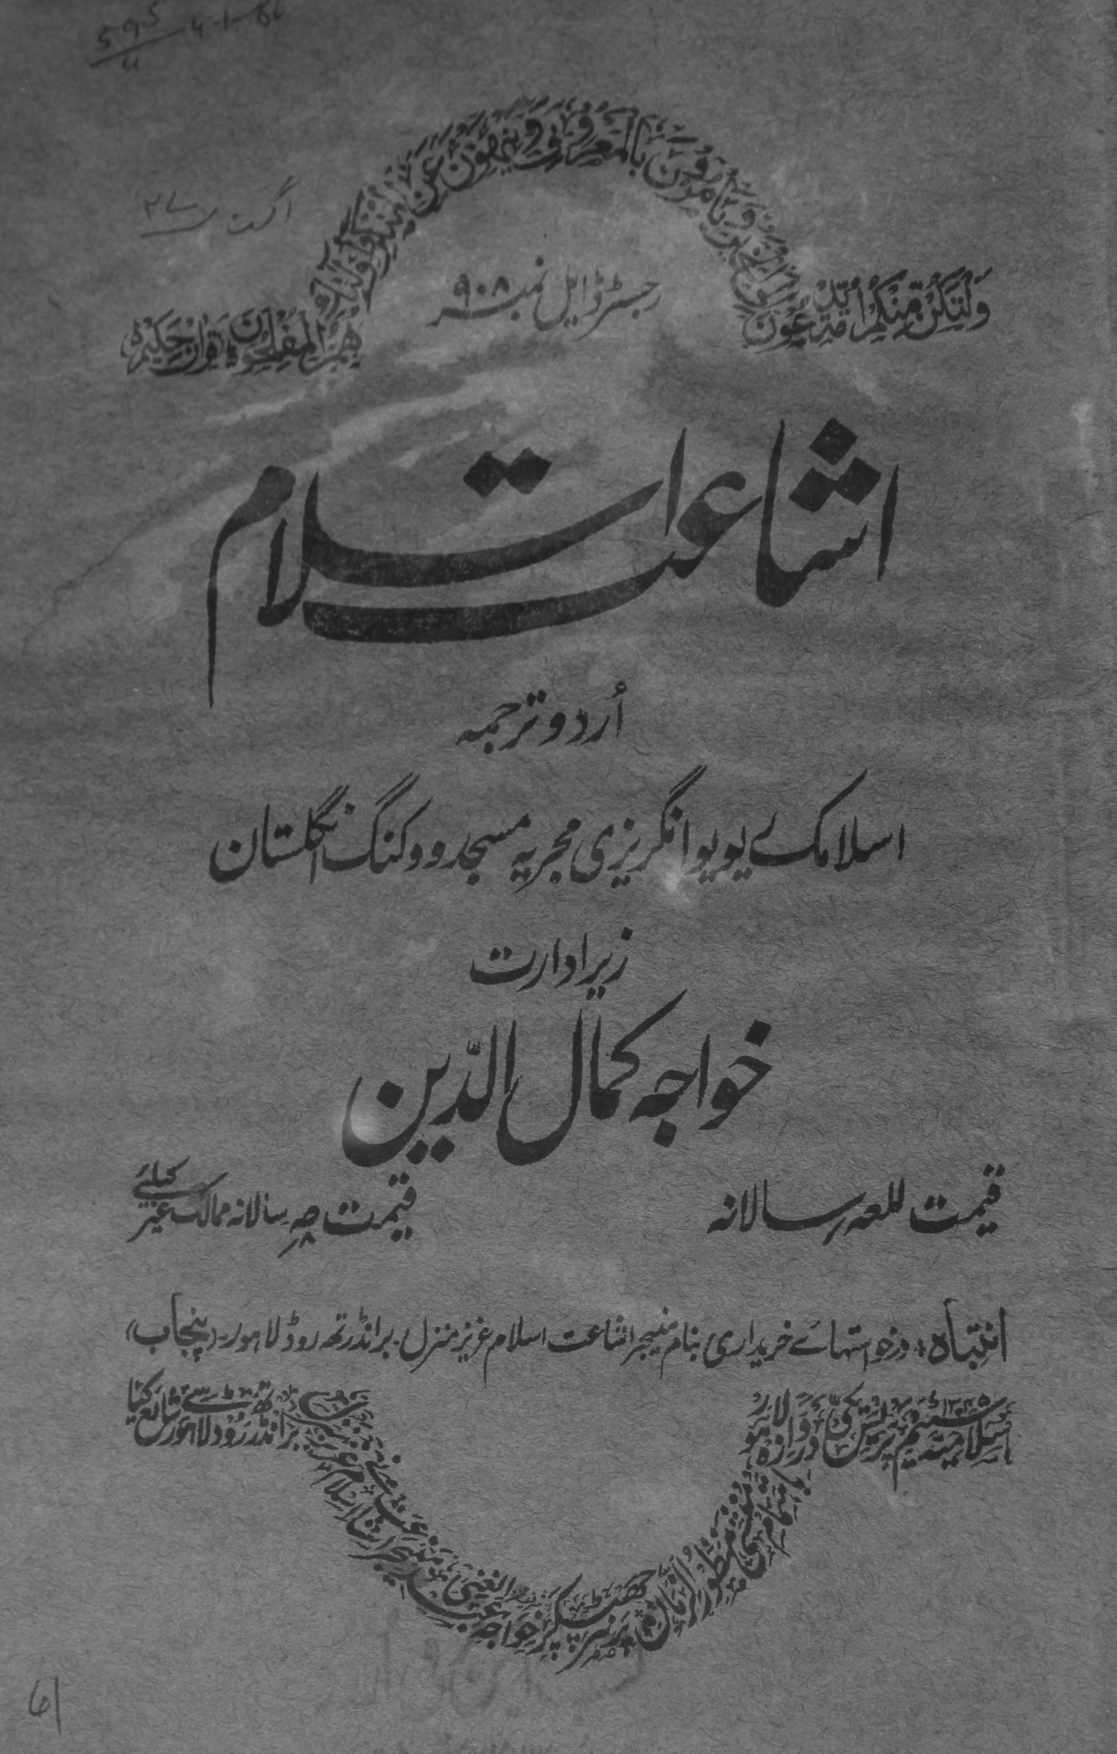 اگست ۲۷ء
ولتکن منکم امۃ یدعون الی الخیر ویأمرون بالمعروف وینھون عن المنکر واولئک ھم المفلحون قرآن حکیم
رجسٹرڈ ایل نمبر ۹۰۸
اشاعت اسلام
اُردو ترجمہ
اسلامک ریویو انگریزی مجریہ مسجد ووکنگ انگلستان
زیر ادارت
خواجہ کمال الدّین
قیمت للعہ سالانہ
قیمت سالانہ ممالک غیر کیلئے
انتباہ: درخواستہائے خریداری بنام منیجر اشاعت اسلام عزیز منزل۔ برانڈرتھ روڈ لاہور۔ (پنجاب)
اسلامیہ سٹیم پریس دروازہ لاہور باہتمام منشی منظور پرنٹر چھپکر خواجہ عبد الغنی منیجر اشاعت اسلام عزیز منزل برانڈرتھ روڈ لاہور سے شایع کیا